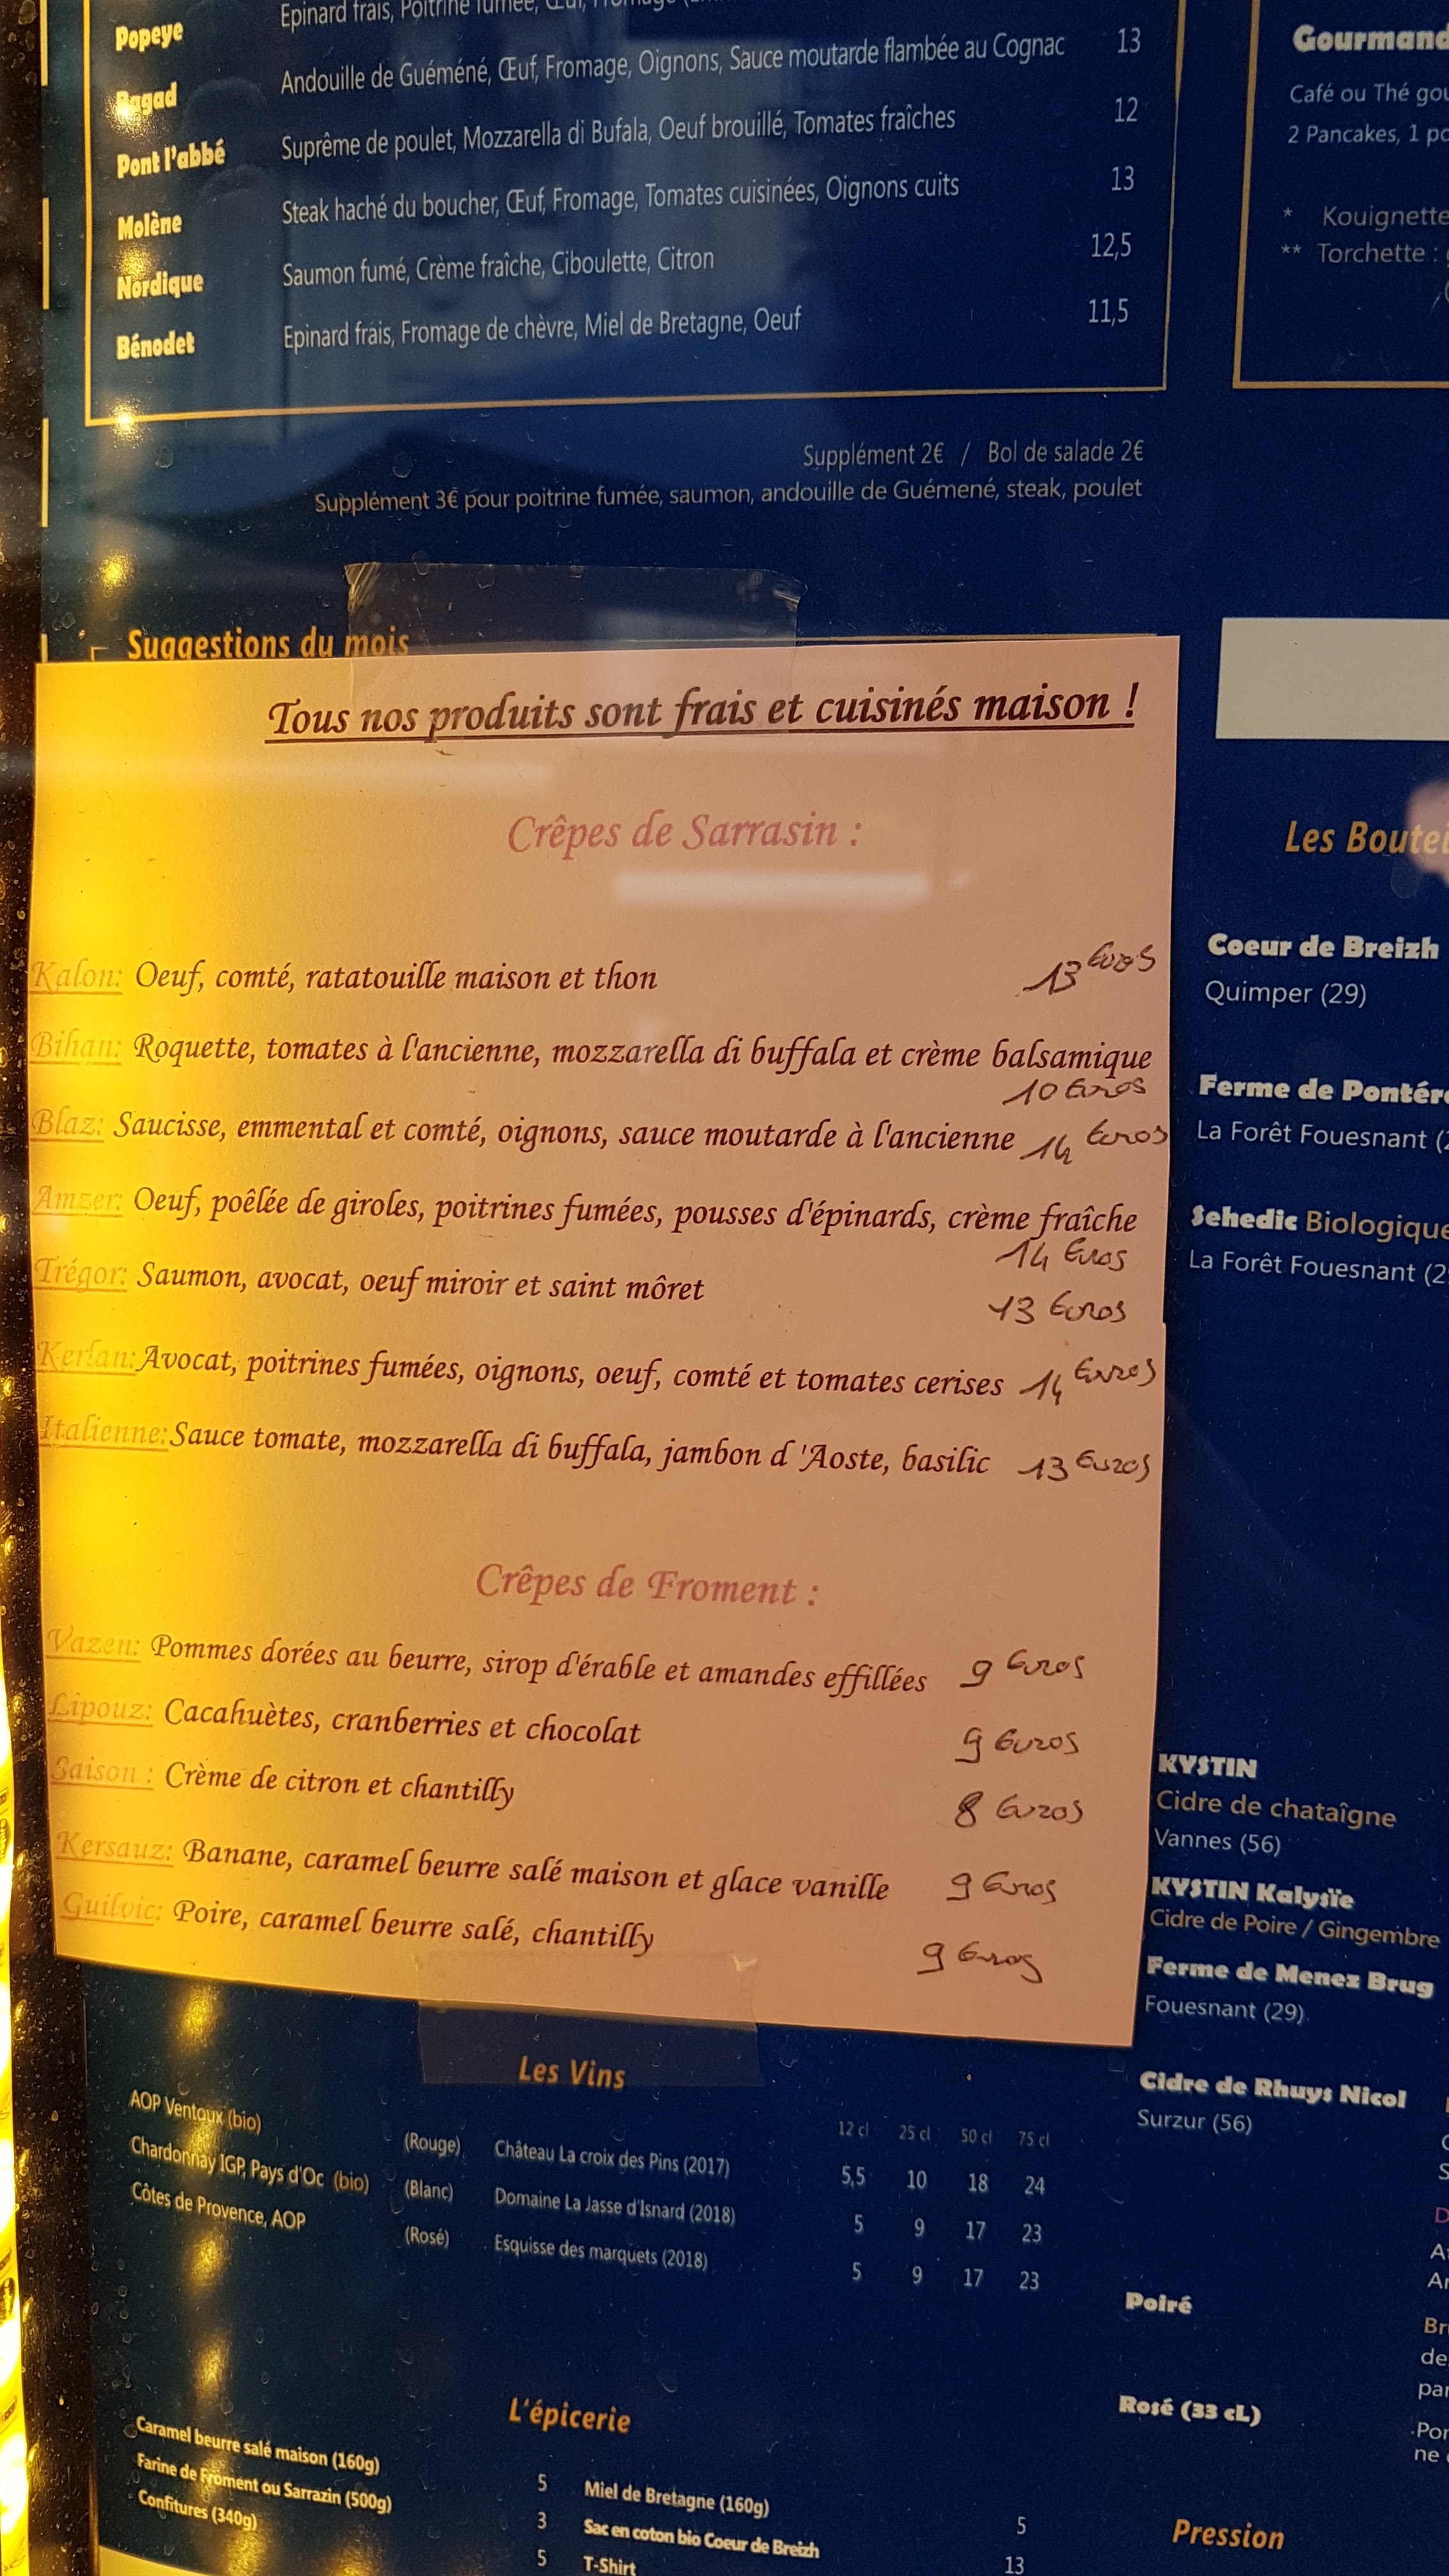 Popeye Epinard frais, Poitrine fumée, Œuf, Fromage
Bagad Andouille de Guéméné, Œuf, Fromage, Oignons, Sauce moutarde flambée au Cognac 13
Pont l'abbé Suprême de poulet, Mozzarella di Bufala, Oeuf brouillé, Tomates fraîches 12
Molène Steak haché du boucher, Œuf, Fromage, Tomates cuisinées, Oignons cuits 13
Nordique Saumon fumé, Crème fraîche, Ciboulette, Citron 12,5
Bénodet Epinard frais, Fromage de chèvre, Miel de Bretagne, Oeuf 11,5
Supplément 2€ / Bol de salade 2€
Supplément 3€ pour poitrine fumée, saumon, andouille de Guémené, steak, poulet
Gourmand
Café ou Thé gou
2 Pancakes, 1 po
* Kouignette
** Torchette :
Suggestions du mois
Tous nos produits sont frais et cuisinés maison !
Crêpes de Sarrasin :
Kalon: Oeuf, comté, ratatouille maison et thon 13 Euros
Bihan: Roquette, tomates à l'ancienne, mozzarella di buffala et crème balsamique
10 Euros
Blaz: Saucisse, emmental et comté, oignons, sauce moutarde à l'ancienne 14 Euros
Amzer: Oeuf, poêlée de giroles, poitrines fumées, pousses d'épinards, crème fraîche
14 Euros
Trégor: Saumon, avocat, oeuf miroir et saint môret
13 Euros
Kerlan: Avocat, poitrines fumées, oignons, oeuf, comté et tomates cerises 14 Euros
Italienne: Sauce tomate, mozzarella di buffala, jambon d 'Aoste, basilic 13 Euros
Crêpes de Froment :
Vazen: Pommes dorées au beurre, sirop d'érable et amandes effillées 9 Euros
Lipouz: Cacahuètes, cranberries et chocolat 9 Euros
Saison : Crème de citron et chantilly 8 Euros
Kersauz: Banane, caramel beurre salé maison et glace vanille 9 Euros
Guilvic: Poire, caramel beurre salé, chantilly 9 Euros
Les Boutei
Coeur de Breizh
Quimper (29)
Ferme de Pontére
La Forêt Fouesnant (2
Sehedic Biologique
La Forêt Fouesnant (2
KYSTIN
Cidre de chataîgne
Vannes (56)
KYSTIN Kalysïe
Cidre de Poire / Gingembre
Ferme de Menez Brug
Fouesnant (29)
Cidre de Rhuys Nicol
Surzur (56)
Poiré
Rosé (33 cL)
Pression
Les Vins
12 cl 25 cl 50 cl 75 cl
AOP Ventoux (bio) (Rouge) Château La croix des Pins (2017) 5,5 10 18 24
Chardonnay IGP, Pays d'Oc (bio) (Blanc) Domaine La Jasse d'Isnard (2018) 5 9 17 23
Côtes de Provence, AOP (Rosé) Esquisse des marquets (2018) 5 9 17 23
L'épicerie
Caramel beurre salé maison (160g) 5 Miel de Bretagne (160g) 5
Farine de Froment ou Sarrazin (500g) 3 Sac en coton bio Coeur de Breizh 13
Confitures (340g) 5 T-Shirt